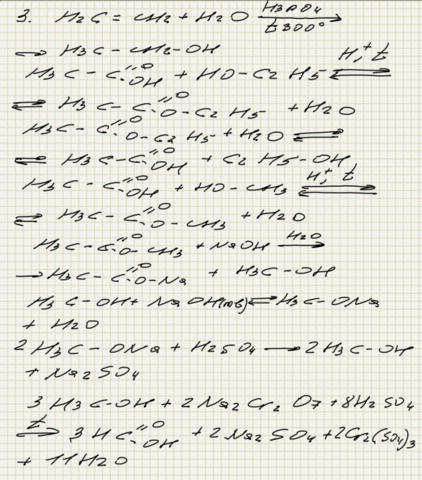 3. H₂C = CH₂ + H₂O H₃PO₄ t 300° →
⇌ H₃C – CH₂–OH
H₃C – C(=O)OH + HO–C₂H₅ H⁺, t ⇌
⇌ H₃C – C(=O)O–C₂H₅ + H₂O
H₃C – C(=O)O–C₂H₅ + H₂O ⇌
⇌ H₃C – C(=O)OH + C₂H₅–OH
H₃C – C(=O)OH + HO–CH₃ H⁺, t ⇌
⇌ H₃C – C(=O)O–CH₃ + H₂O
H₃C–C(=O)O–CH₃ + NaOH H₂O →
→ H₃C – C(=O)O–Na + H₃C–OH
H₃C–OH + NaOH(тв) ⇌ H₃C–ONa
+ H₂O
2H₃C–ONa + H₂SO₄ → 2H₃C–OH
+ Na₂SO₄
3H₃C–OH + 2Na₂Cr₂O₇ + 8H₂SO₄
t ⇌ 3HC(=O)OH + 2Na₂SO₄ + 2Cr₂(SO₄)₃
+ 11H₂O